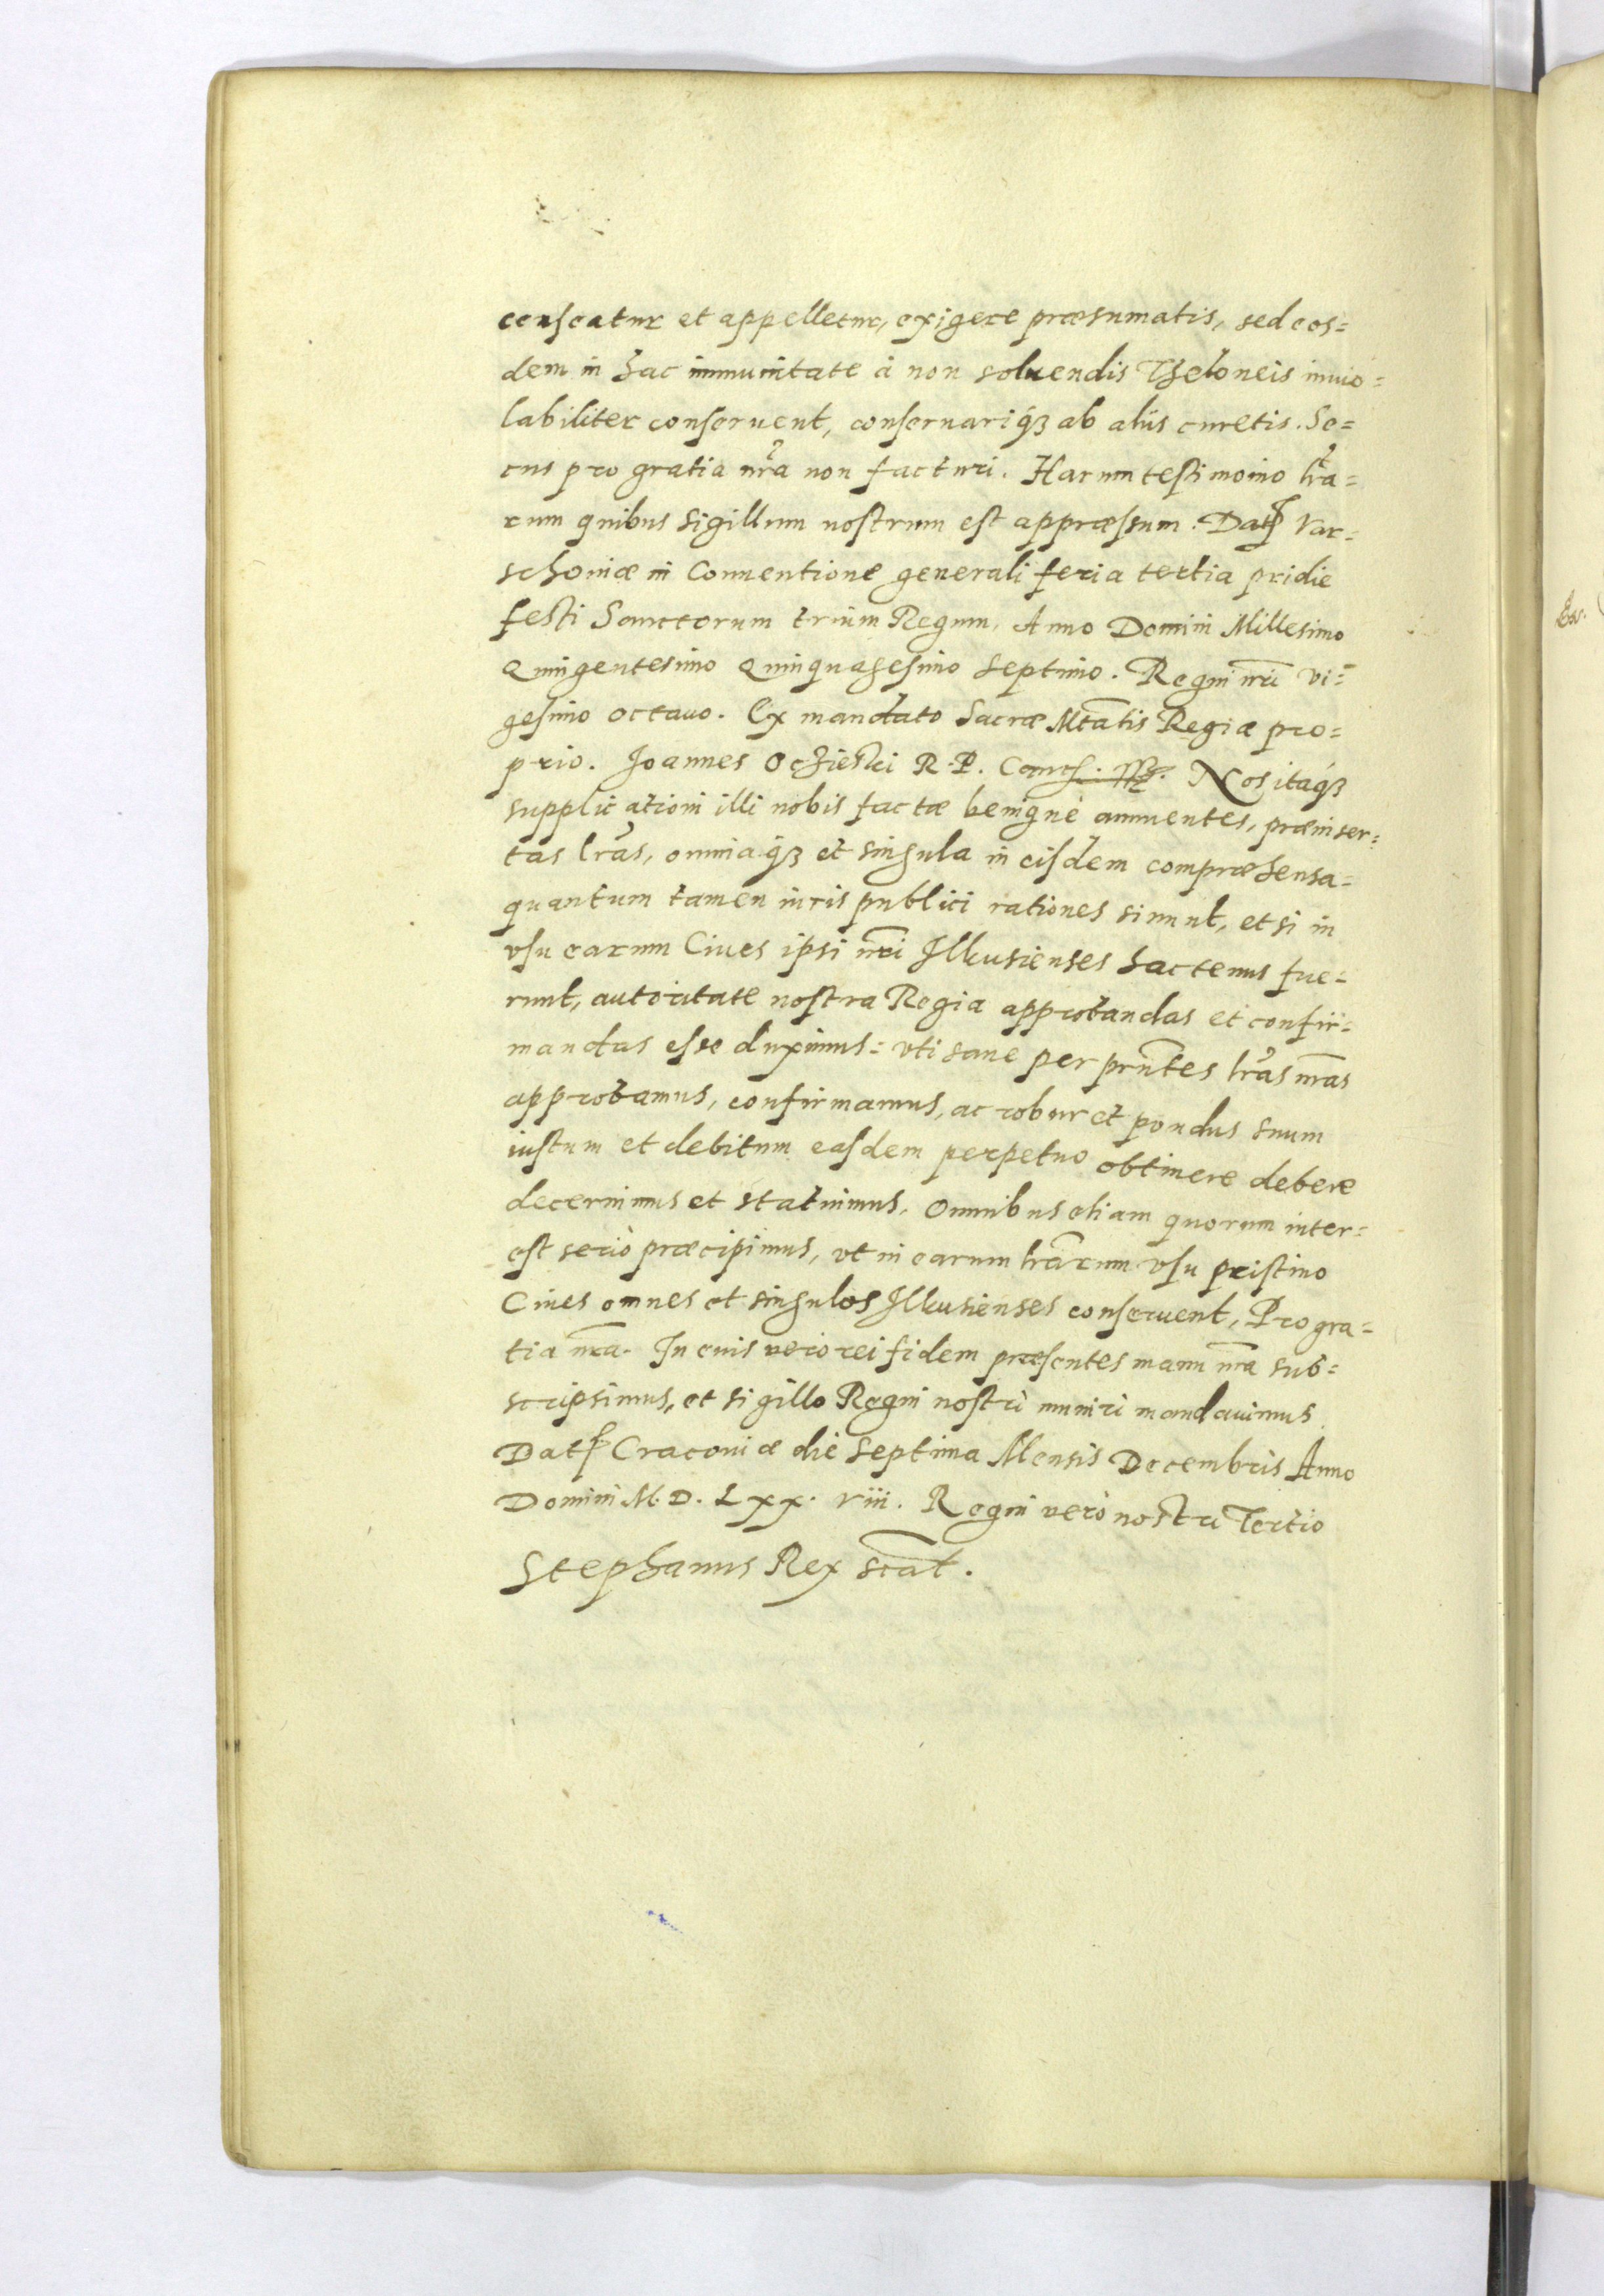 censeatur et appelletur, exigere præsumatis, sed eos=
dem in hac immunitate à non soluendis Theloneis inuio=
labiliter conseruent, conseruariq3 ab alijs curetis. Se=
cus pro gratia nr̃a non facturi. Harum testimonio lr̃a=
rum quibus Sigillum nostrum est appræssum. Dat Var=
schouiæ in Conuentione generali feria tertia pridie
festi Sanctorum trium Regum, Anno Domini Millesimo
Quingentesimo Quinquagesimo Septimo. Regni nr̃i Vi=
gesimo octauo. Ex mandato Sacræ Mtãtis Regiæ pro=
prio. Joannes Oczieski R. P. Nos itaq3
supplicationi illi nobis factæ benignè annuentes, præinser=
tas lr̃as, omniaq3 et singula in eisdem compræhensa=
quantum tamen iuris publici rationes sinunt, et si in
vsu earum Ciues ipsi nr̃i Illkusienses hactenus fue=
runt, autoritate nostra Regia approbandas et confir=
mandas esse duximus= vti sane per prñtes lr̃as nr̃as
approbamus, confirmamus, ac robur et pondus suum
iustum et debitum easdem perpetuo obtinere debere
decernimus et statuimus. Omnibus etiam quorum inter=
est seriò præcipimus, vt in earum lr̃arum vsu pristino
Ciues omnes et singulos Illkusienses conseruent, Pro gra=
tia nr̃a. In cuius vero rei fidem præsentes manu nr̃a sub=
scripsimus, et sigillo Regni nostri muniri mandauimus
Dat Cracouiæ die Septima Mensis Decembris Anno
Domini M. D. Lxx. viii. Regni verò nostri Tertio
Stephanus Rex scãt.
Ex.